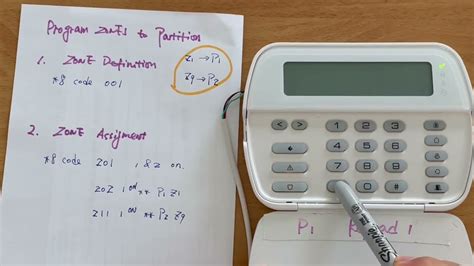 Program Zones to Partition
1. Zone Definition
*8 code 001
Z1 → P1
Z9 → P2
2. Zone Assigment
*8 code 201 1, &2 on.
202 1 ON ** P1 Z1
211 1 ON ** P2 Z9
1 2 3
4 5 6
7 8 9
0 #
Sharpie
P1 Read 1